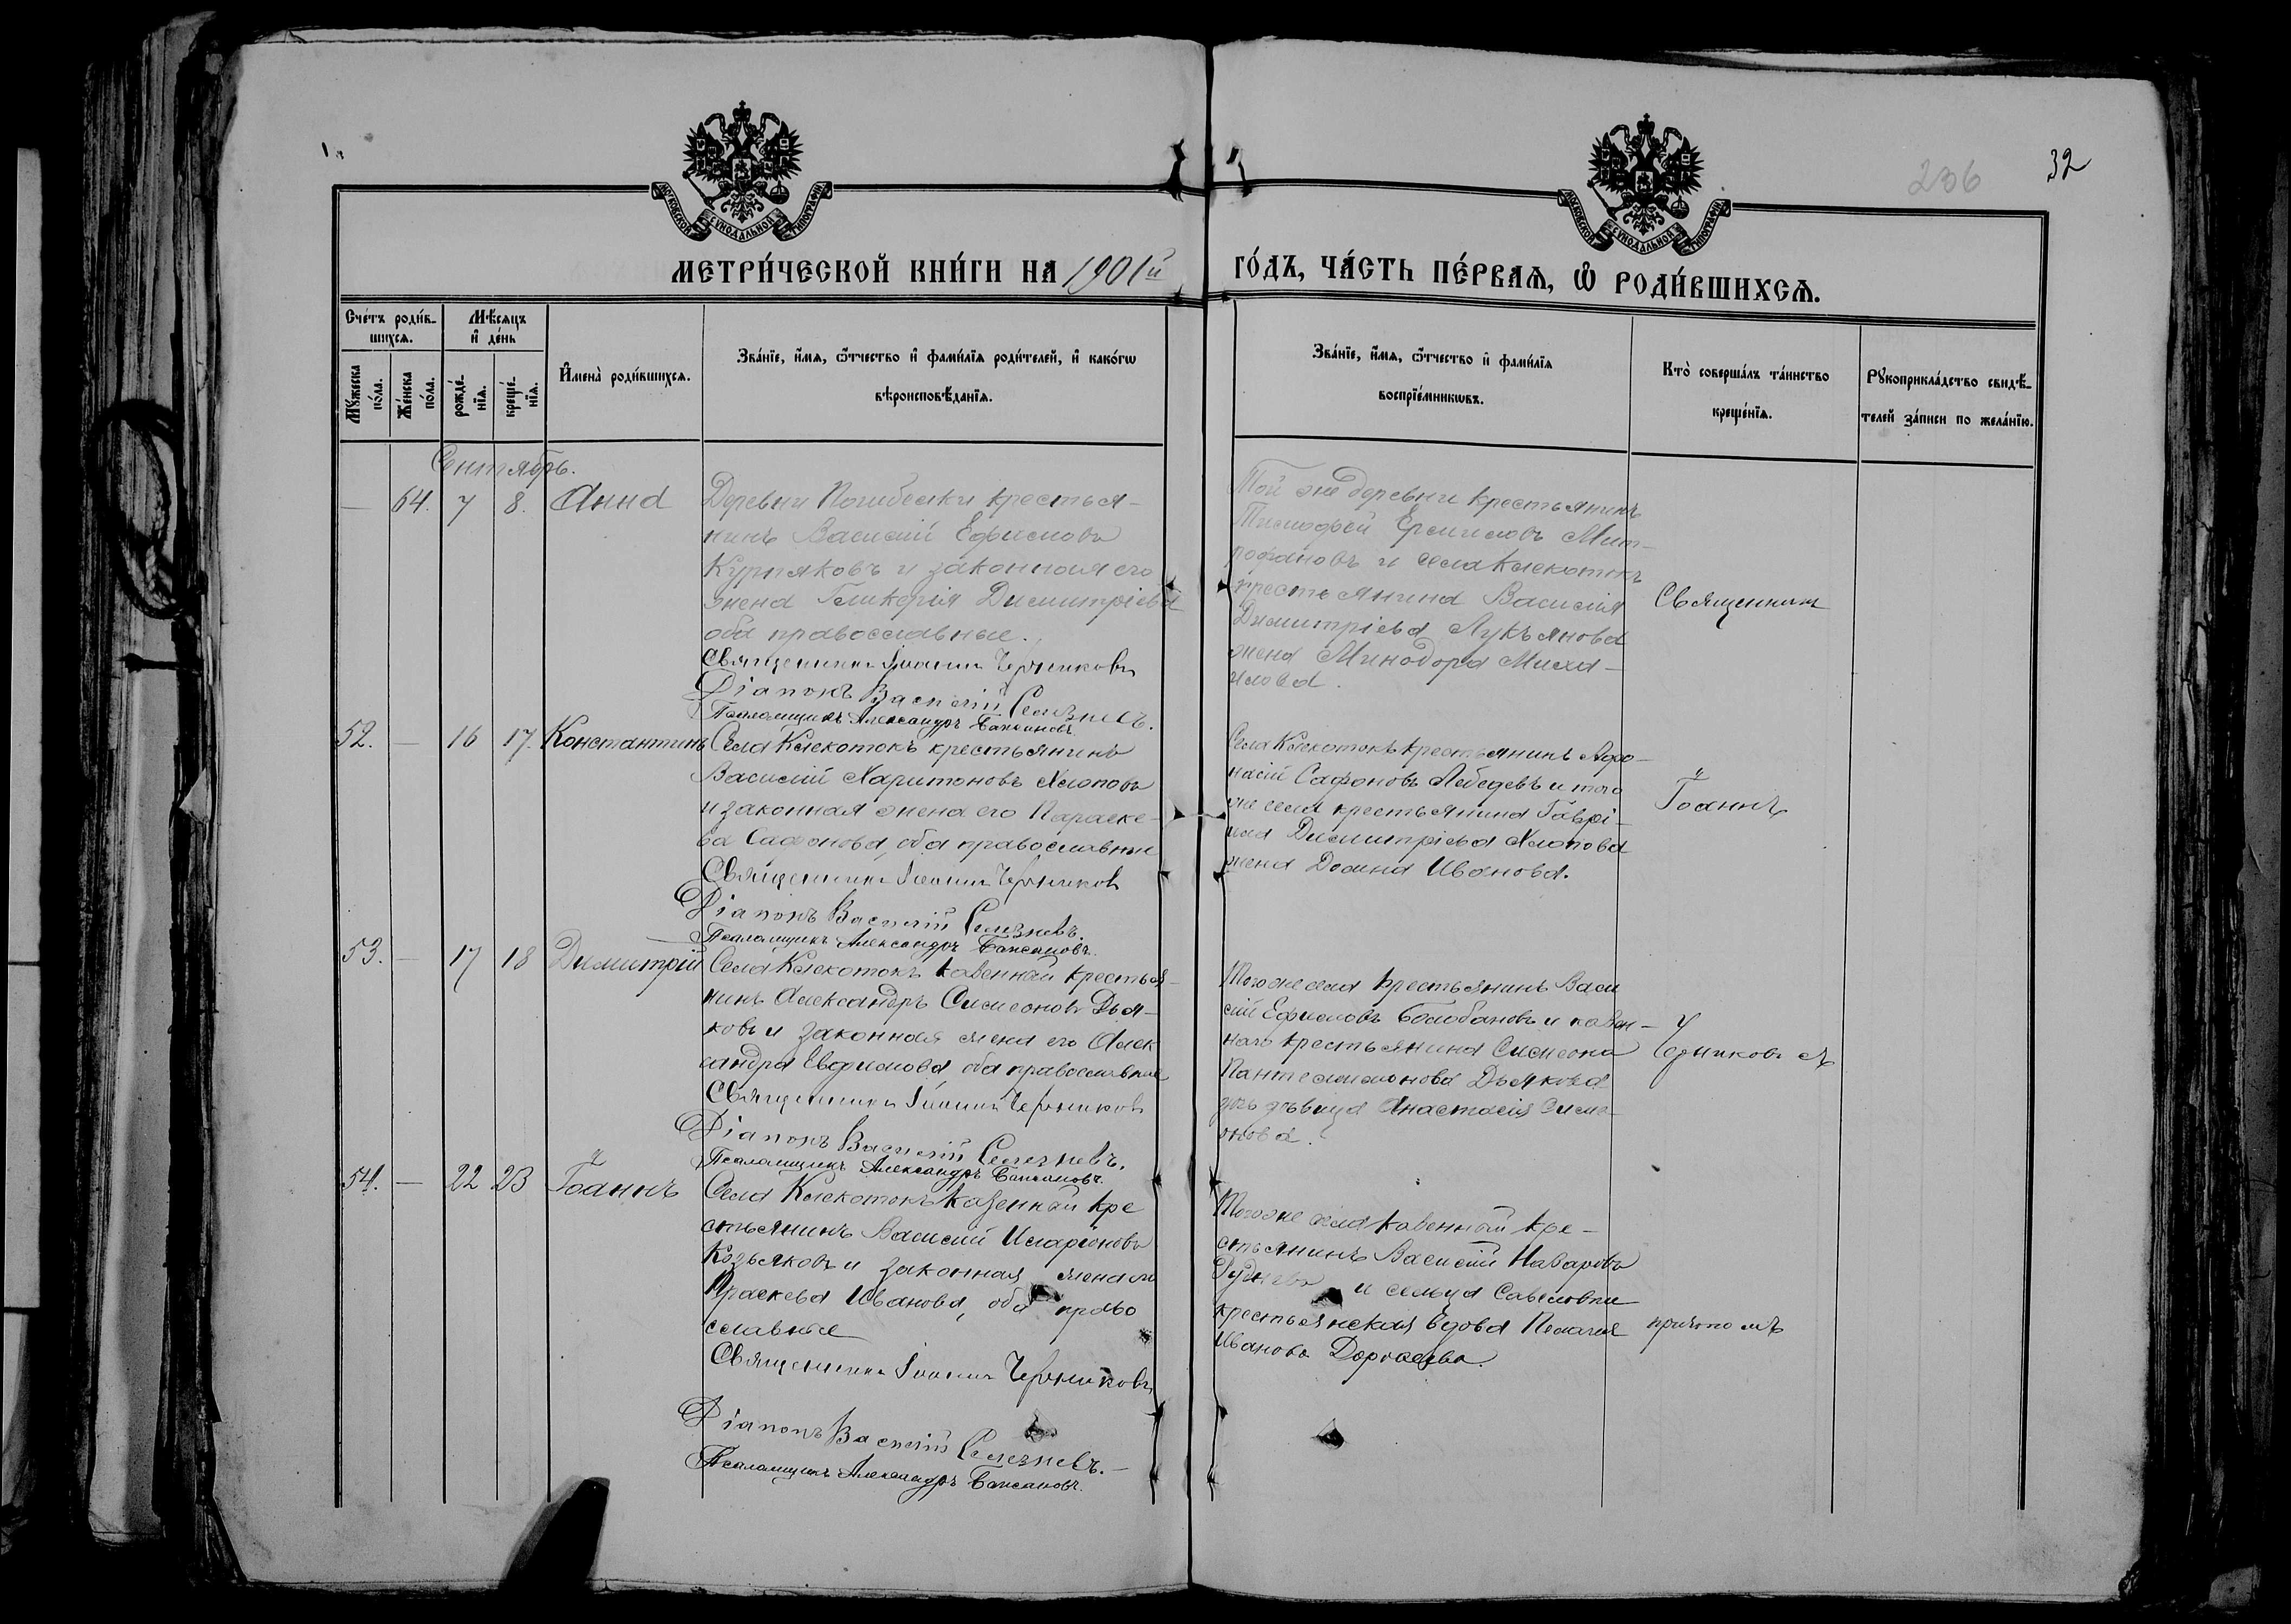 236
32
МОСКОВСКОЙ СѴНОДАЛЬНОЙ ТИПОГРАФІИ
МОСКОВСКОЙ СѴНОДАЛЬНОЙ ТИПОГРАФІИ
МЕТРИ́ЧЕСКОЙ КНИ́ГИ НА 1901й
ГО́ДЪ, ЧА́СТЬ ПЕ́РВАѦ, Ѡ҆ РОДИ́ВШИХСѦ.
Сче́тъ роди́в-
шихсѧ.
Мѣ́сѧцъ
и҆ де́нь
Мꙋ́жеска
по́ла.
Же́нска
по́ла.
рожде́-
нїѧ.
креще́-
нїѧ.
И҆мена̀ роди́вшихсѧ.
Зва́нїе, и҆́мѧ, ѻ҆́тчество и҆ фами́лїѧ роди́телей, и҆ како́гѡ
вѣроисповѣ́данїѧ.
Зва́нїе, и҆́мѧ, ѻ҆́тчество и҆ фами́лїѧ
воспрїе́мникѡвъ.
Кто̀ соверша́лъ та́инство
креще́нїѧ.
Рꙋкоприкла́дство свидѣ́-
телей за́писи по жела́нїю.
Сентябрь.
— 64. 7 8. Анна
Деревни крестья-
нинъ Василій Ефимовъ
Курпяковъ и законная его
жена Гликерія Димитріева
оба православные.
Священникъ Іоаннъ Черниковъ
Діаконъ Василій Селезневъ.
Псаломщикъ Александръ
Той же деревни крестьянинъ
Тимофей Ермиловъ Мит-
рофановъ и села Клекотокъ
крестьянина Василія
Димитріева Лукьянова
жена Минодора Миха-
илова.
Священникъ
52. — 16 17. Константинъ
Села Клекотокъ крестьянинъ
Василій Харитоновъ Хлоповъ
и законная жена его Параске-
ва Сафонова, оба православные
Священникъ Іоаннъ Черниковъ
Діаконъ Василій Селезневъ.
Псаломщикъ Александръ
Села Клекотокъ крестьянинъ Афо-
насій Сафоновъ Лебедевъ и того
же села крестьянина Гаврі-
ила Димитріева Хлопова
жена Домна Иванова.
Іоаннъ
53. — 17 18 Димитрій
Села Клекотокъ казенный крестья-
нинъ Александръ Симеоновъ Дья-
ковъ и законная жена его Алек
сандра Евфимова, оба православные
Священникъ Іоаннъ Черниковъ
Діаконъ Василій Селезневъ.
Псаломщикъ Александръ
Того же села крестьянинъ Васи
лій Ефимовъ Болобановъ и казен-
наго крестьянина Симеона
Пантелеимонова Дьякова
дочь дѣвица Анастасія Симе-
онова.
Черниковъ съ
54. — 22 23 Іоаннъ
Села Клекотокъ казенный кре
стьянинъ Василій Иларіоновъ
Козьяковъ и законная жена его
Праскева Иванова, оба право
славные
Священникъ Іоаннъ Черниковъ
Діаконъ Василій Селезневъ.—
Псаломщикъ Александръ
Того же села казенный кре-
стьянинъ Василій Назаровъ
Рудневъ и сельца Савеловки
крестьянская вдова Пелагія
Иванова
причтомъ